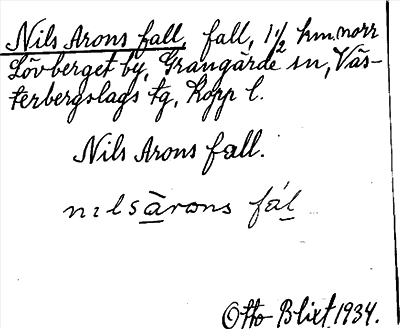 Nils Arons fall, fall, 1½ km. norr
Lövberget by, Grangärde sn, Väs-
terbergslags tg, Kopp l.
Nils Arons fall.
nɪlsàrɷns fál
Otto Blixt, 1934.